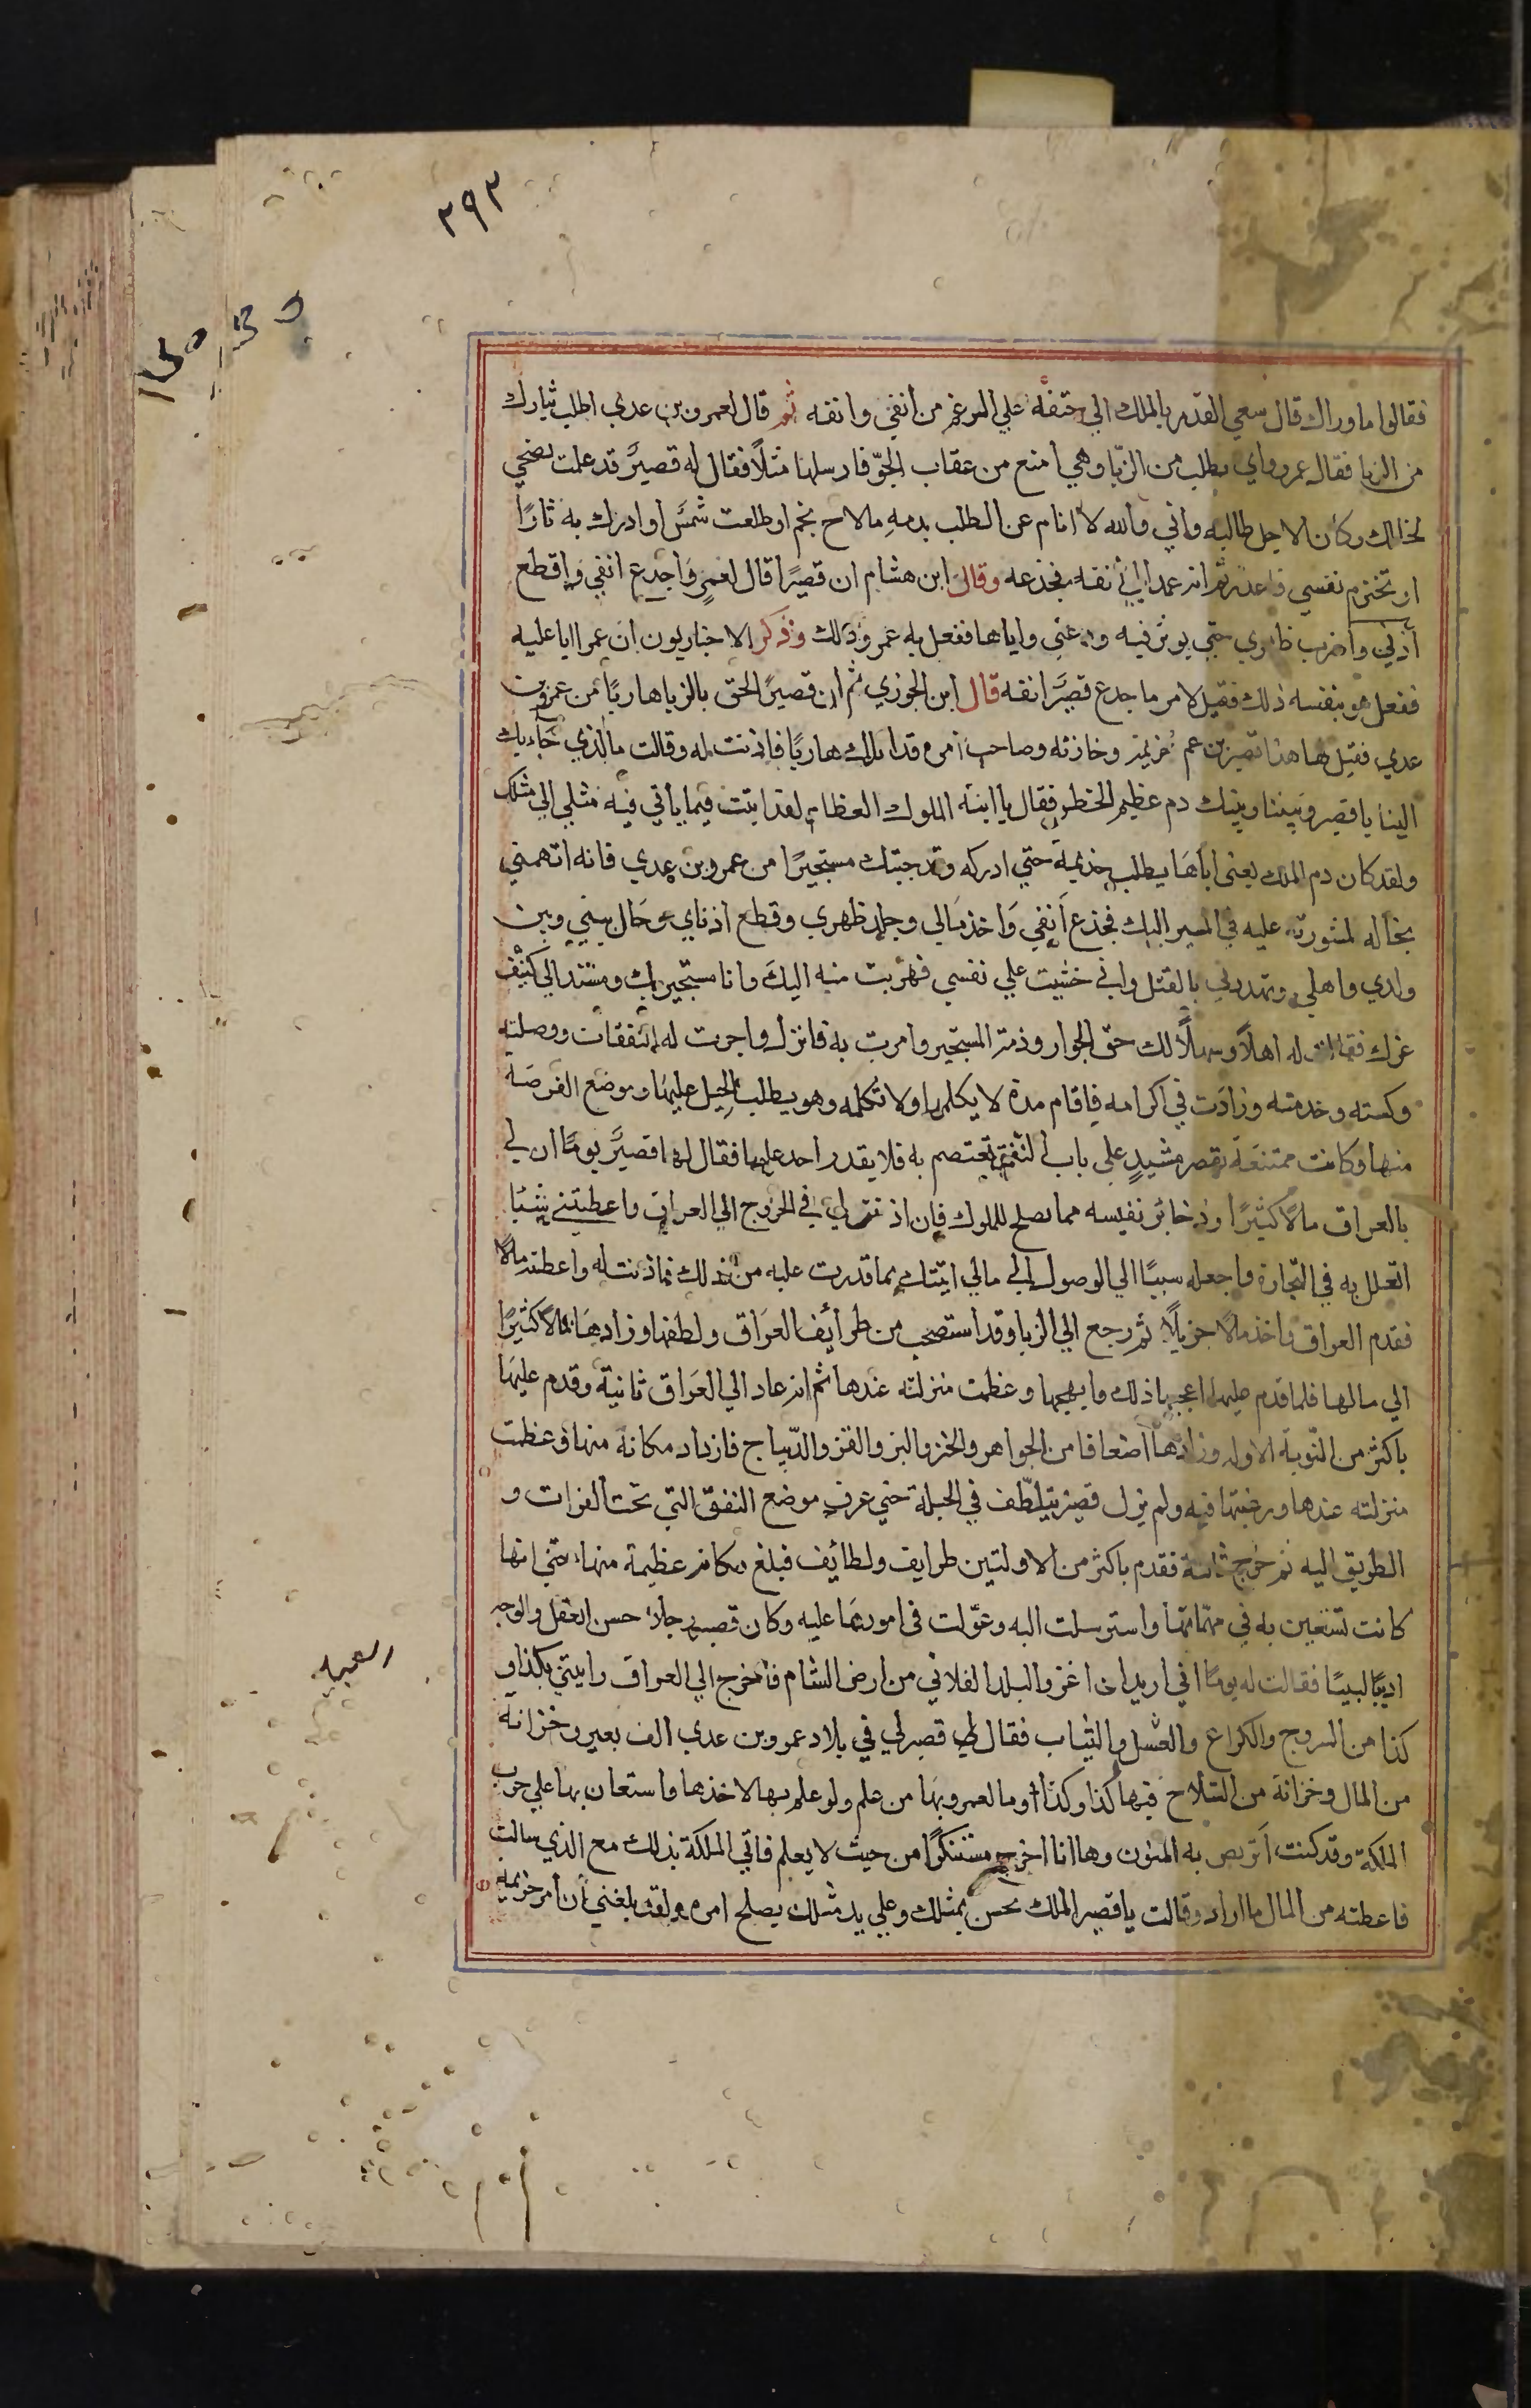 ٢٩٢
فقالوا ما وراك قال سعي القدر بالملك الي حتفه علي الرغم من انفي وانفه ثم قال لعمرو بن عدي اطلب بثارك
من الزبا فقال عمرو واي مطلب من الزبّا وهي امنع من عقاب الجوّ فارسلها مثلاً فقال له قصيرٌ قد علمت نصحي
لخالك وكان الاجل طالبه واني والله لا انام عن الطلب بدمه مالاح نجم او طلعت شمس او ادرك به ثارًا
او تخترم نفسي فاعذر ثم انه عمد الي أنفه فجذعه وقال ابن هشام ان قصيرًا قال لعمرٍو اجدع انفي واقطع
أذني واضرب ظهري حتي يوثر فيه ودعني واياها ففعل به عمرو ذلك وذكر الاخباريون ان عمرا ابا عليه
ففعل هو بنفسه ذلك فقيل لامر ما جدع قصيرٌ انفه قال ابن الجوزي ثم ان قصيرًا لحق بالزبا هاربًا من عمرو بن
عدي فقيل لها هذا قصير بن عم جزيمة وخازنه وصاحب أمره قد اتاك هاربًا فاذنت له وقالت ما الذي جآء بك
الينا يا قصير وبيننا وبينك دم عظيم الخطر فقال يا ابنة الملوك العظام لقد اتيت فيما ياتي فيه مثلي الي مثلك
ولقد كان دم الملك يعني اباها يطلب جذيمة حتي ادركه وقد جيتك مستجيرًا من عمرو بن عدي فانه اتهمني
بخاله لمشورتي عليه في المسير اليك فجذع اَنفي وَاخذ مَالي وجلد ظهري وقطع اذناي وحَال بيني وبين
ولدي واهلي وتهددني بالقتل واني خشيت علي نفسي فهربت منه اليكَ وانا مستجير بك ومستند الي كنف
عزك فقالت له اهلاً وسهلاً لك حق الجوار وذمة المستجير وامرت به فانزل واجرت له النفقات ووصلته
وكسته وخدمته وزادَت في اكرامه فاقام مدة لا يكلمها ولا تكلمه وهو يطلب الحيل عليها وموضع الفرصة
منها وكانت ممتنعَة بقصر مشيدٍ علي باب النفق تعتصم به فلا يقدر احد عليها فقال لها قصيرٌ يومًا ان لي
بالعراق مالاً كثيرًا وذخائر نفيسه مما يصلح للملوك فان اذنتي لي في الخروج الي العراق واعطيتني شيئا
اتعلل به في التجارة واجعله سببًا الي الوصول الي مالي اتيتك بما قدرت عليه من ذلك فاذنت له واعطته مالاً
فقدم العراق واخذ مالاً جزيلاً ثم رجع الي الزبا وقد استصحب من طرائف العرَاق ولطفها وزادهَا مالا كثيرًا
الي مالها فلما قدم عليها اعجبها ذلك وابهجها وعظمت منزلته عندها ثم انه عاد الي العَراق ثانية وقدم عليهَا
باكثر من النّوبة الاولي وزادها اضعافا من الجواهر والخز والبز والقز والدّيباج فازداد مكانه منها وعظمت
منزلته عندها ورغبتها فيه ولم يزل قصير يتلطّف في الحيلة حتي عرف موضع النفق التي تحت الفرات و
الطريق اليه ثم خرج ثالثة فقدم باكثر من الاولتين طرايف ولطائيف فبلغ مكانه عظيمة منها حتي انها
كانت تستعين به في مهمّاتها واسترسلت اليه وعوّلت في امورهَا عليه وكان قصير رجلاً حسن العقل والوجه
اديبًا لبيبًا فقالت له يومًا اني اريد ان اغزو البلد الفلاني من ارض الشام فاخرج الي العراق وايتني بكذا و
كذا من السروج والكراع والعسل والثياب فقال لها قصير لي في بلاد عمرو بن عدي الف بعير وخزانة
من المال وخزانة من السّلاح فيها كذا وكذا وما لعمرو بها من علم ولو علم بها لاخذها واستعان بها علي حرب
الملكة وقد كنت اَتربص به المنون وها انا اخرج متنكرًا من حيث لا يعلم فاتي الملكة بذلك مع الذي سالت
فاعطته من المال ما اراد وقالت يا قصير الملك يحسن بمثلك وعلي يد مثلك يصلح امره ولقد بلغني ان أمر جزيمه